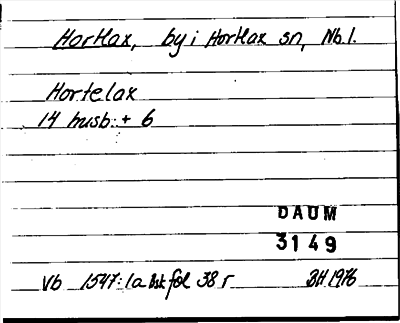 Hortlax, by i Hortlax sn, Nb.l.
Hortelax
14 husb: + 6
DAUM
3149
Vb 1547: 1a Bsk fol 38 r BH 1976